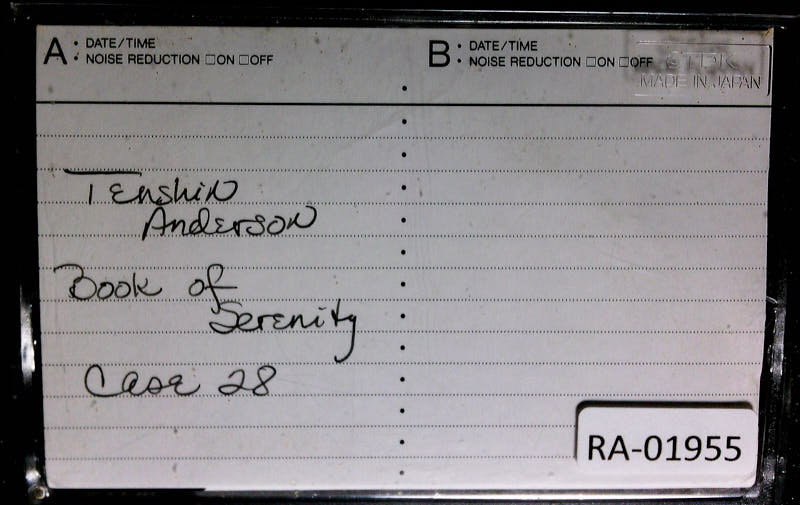 A • DATE/TIME
• NOISE REDUCTION □ON □OFF
B • DATE/TIME
• NOISE REDUCTION □ON □OFF
TDK
MADE IN JAPAN
Tenshin
Anderson
Book of
Serenity
Case 28
RA-01955